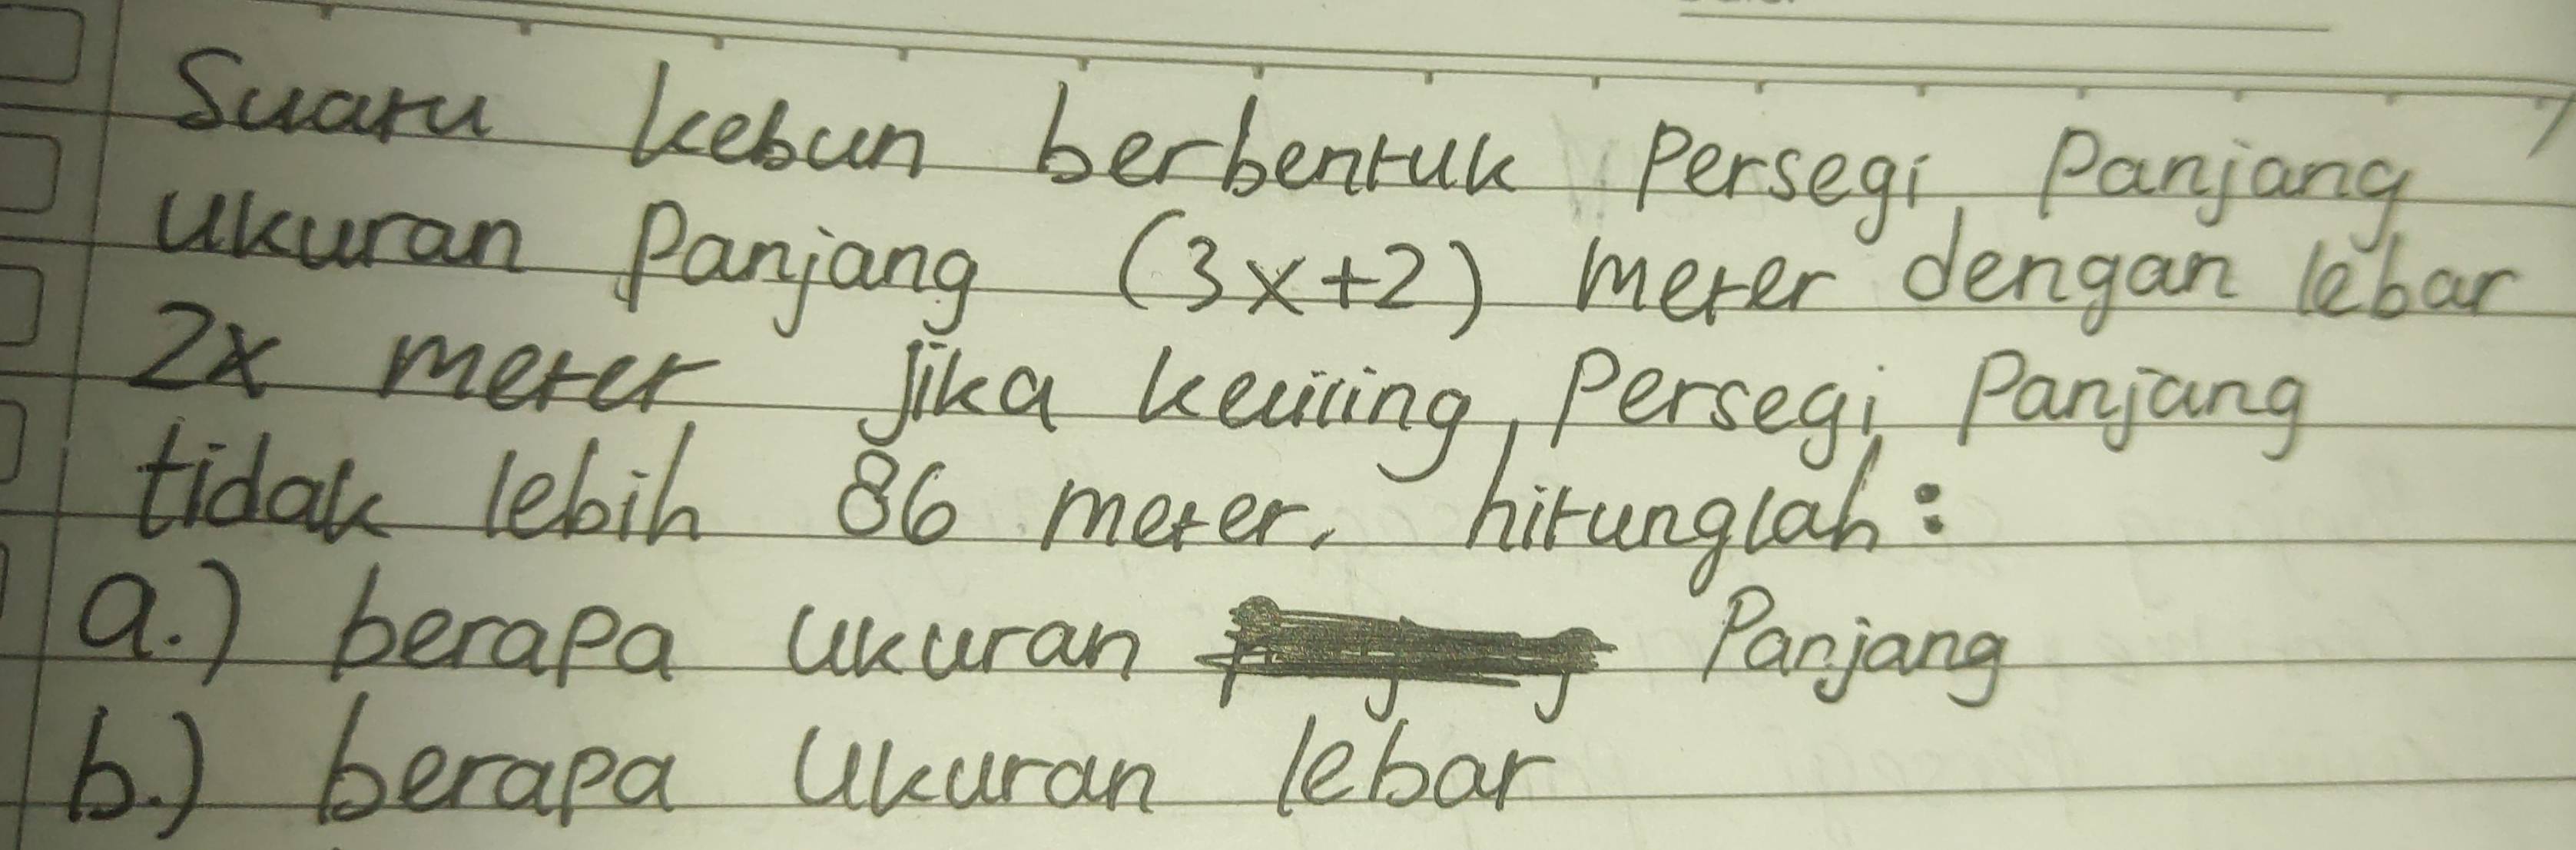 Suatu kebun berbentuk Persegi Panjang
ukuran Panjang (3x+2) meter dengan lebar
2x meter jika keliling Persegi Panjang
tidak lebih 86 meter. hitunglah:
a.) berapa ukuran Panjang
b.) berapa ukuran lebar